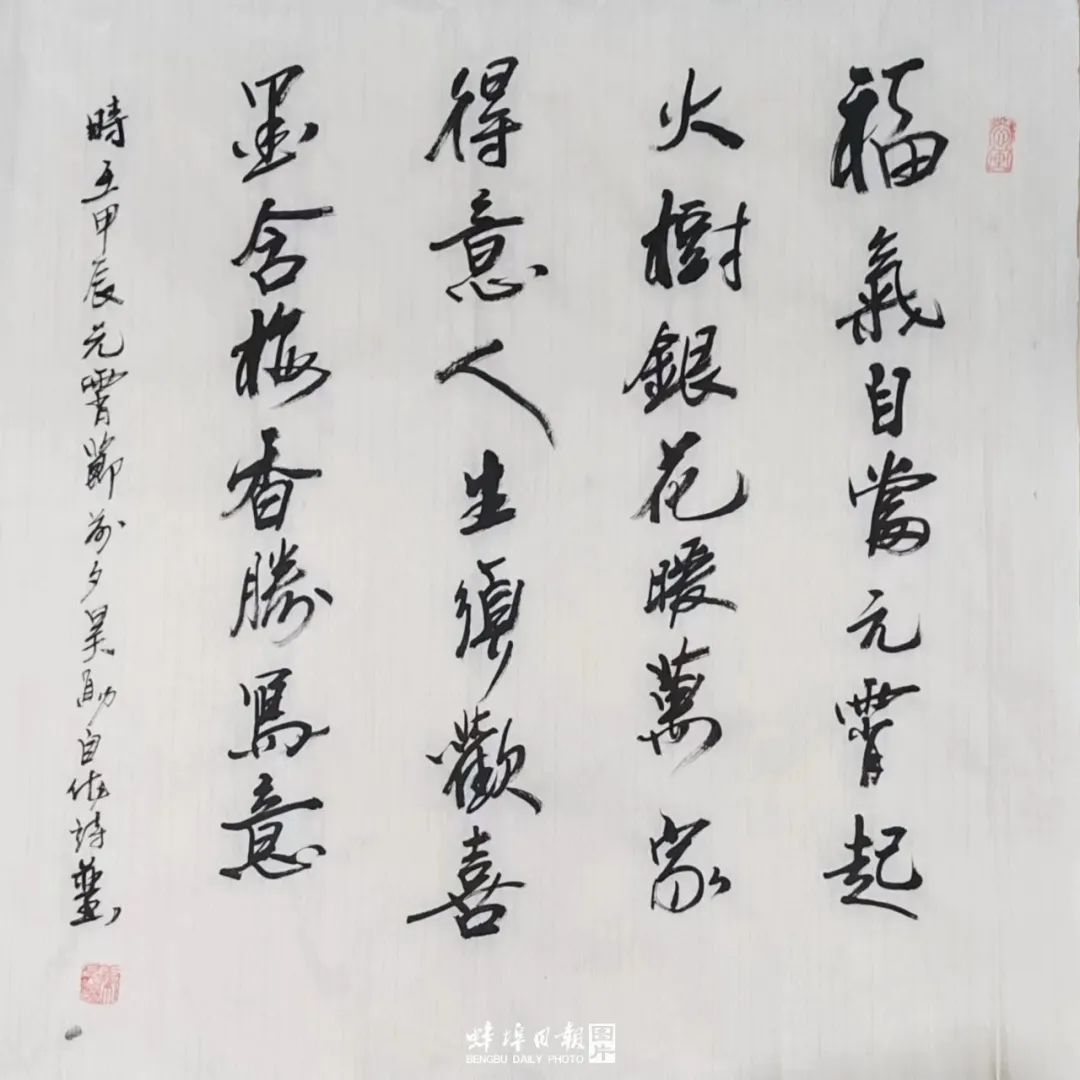 福氣自當元霄起
火樹銀花暖萬家
得意人生須歡喜
墨含梅香勝寫意
時在甲辰元霄節前夕吴勐自作詩
蚌埠日報图片
BENGBU DAILY PHOTO